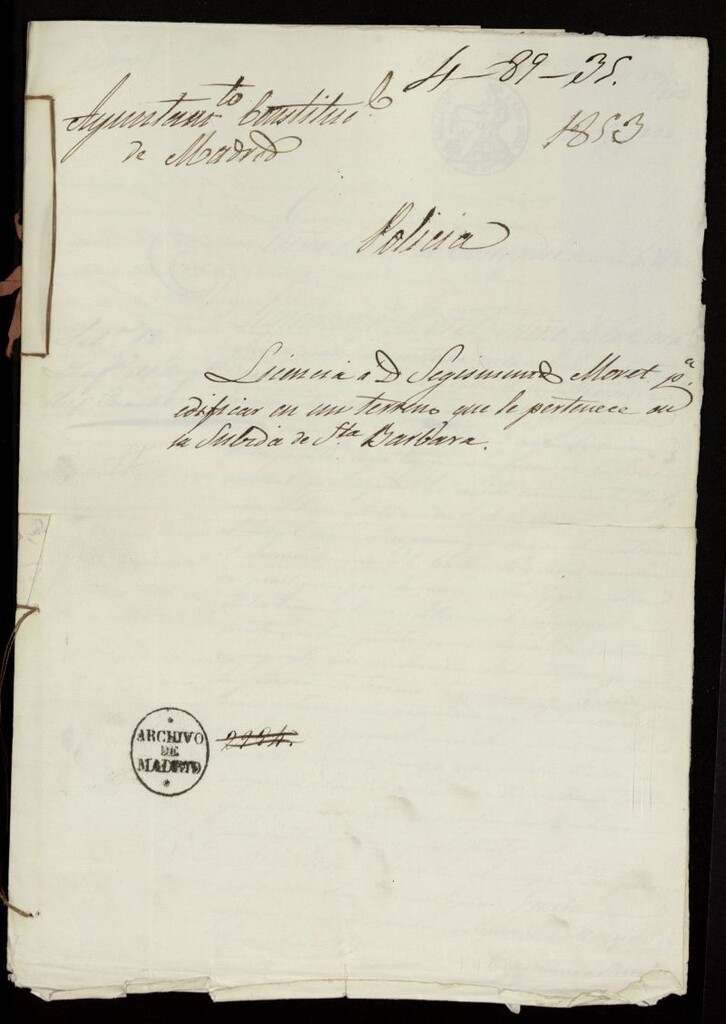 4-89-35.
Ayuntamto Constitucl
de Madrid
1853
Policia
Licencia a D Segismundo Moret pa
edificar en un terreno que le pertenece en
la Subida de Sta Barbara.
ARCHIVO
DE
MADRID